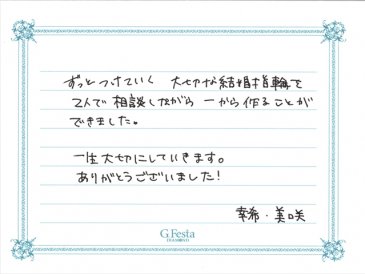 ずっとつけていく 大切な結婚指輪を
2人で 相談しながら 一から作ることが
できました。
一生大切にしていきます。
ありがとうございました!
幸希・美咲
G.Festa
DIAMOND